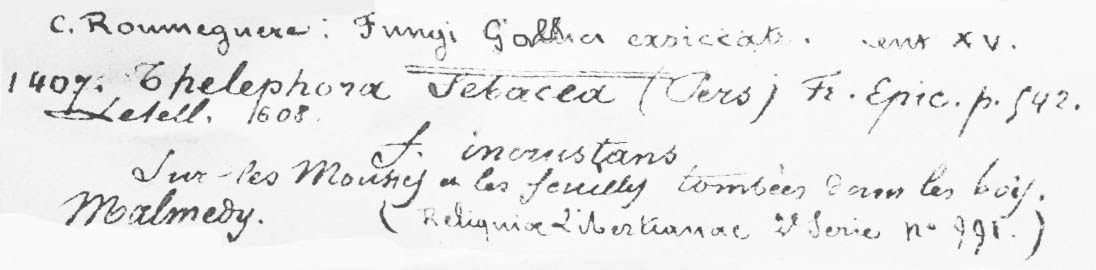 C. Roumeguere: Fungi Gallici exsiccati. cent XV.
1407. Thelephora Sebacea (Pers) Fr. Epic. p. 542.
Letell. 1608.
f. incrustans
Sur les Mousses et les feuilles tombées dans les bois.
Malmedy. (Reliquiae Libertianae 2e Serie n° 991.)